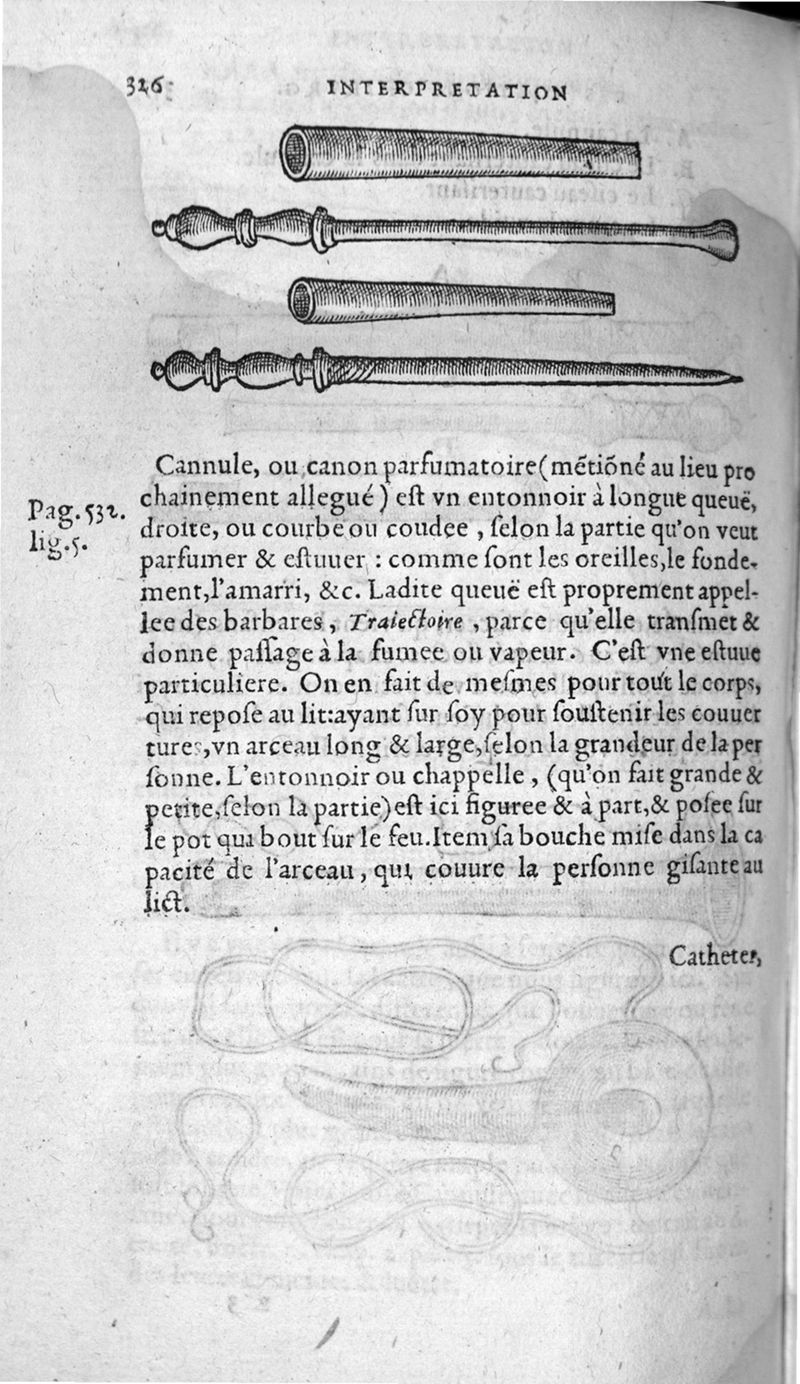 326
INTERPRETATION
Cannule, ou canon parfumatoire (métiõné au lieu pro
chainement allegué) est vn entonnoir à longue queuë,
Pag. 532.
lig. 5.
droite, ou courbe ou coudee, selon la partie qu'on veut
parfumer & estuuer : comme sont les oreilles, le fonde-
ment, l'amarri, &c. Ladite queuë est proprement appel-
lee des barbares, Traiectoire, parce qu'elle transmet &
donne passage à la fumee ou vapeur. C'est vne estuue
particuliere. On en fait de mesmes pour tout le corps,
qui repose au lit: ayant sur soy pour soustenir les couuer
tures, vn arceau long & large, selon la grandeur de la per
sonne. L'entonnoir ou chappelle, (qu'on fait grande &
petite, selon la partie) est ici figuree & à part, & posee sur
le pot qui bout sur le feu. Item sa bouche mise dans la ca
pacité de l'arceau, qui couure la personne gisante au
lict.
Catheter,